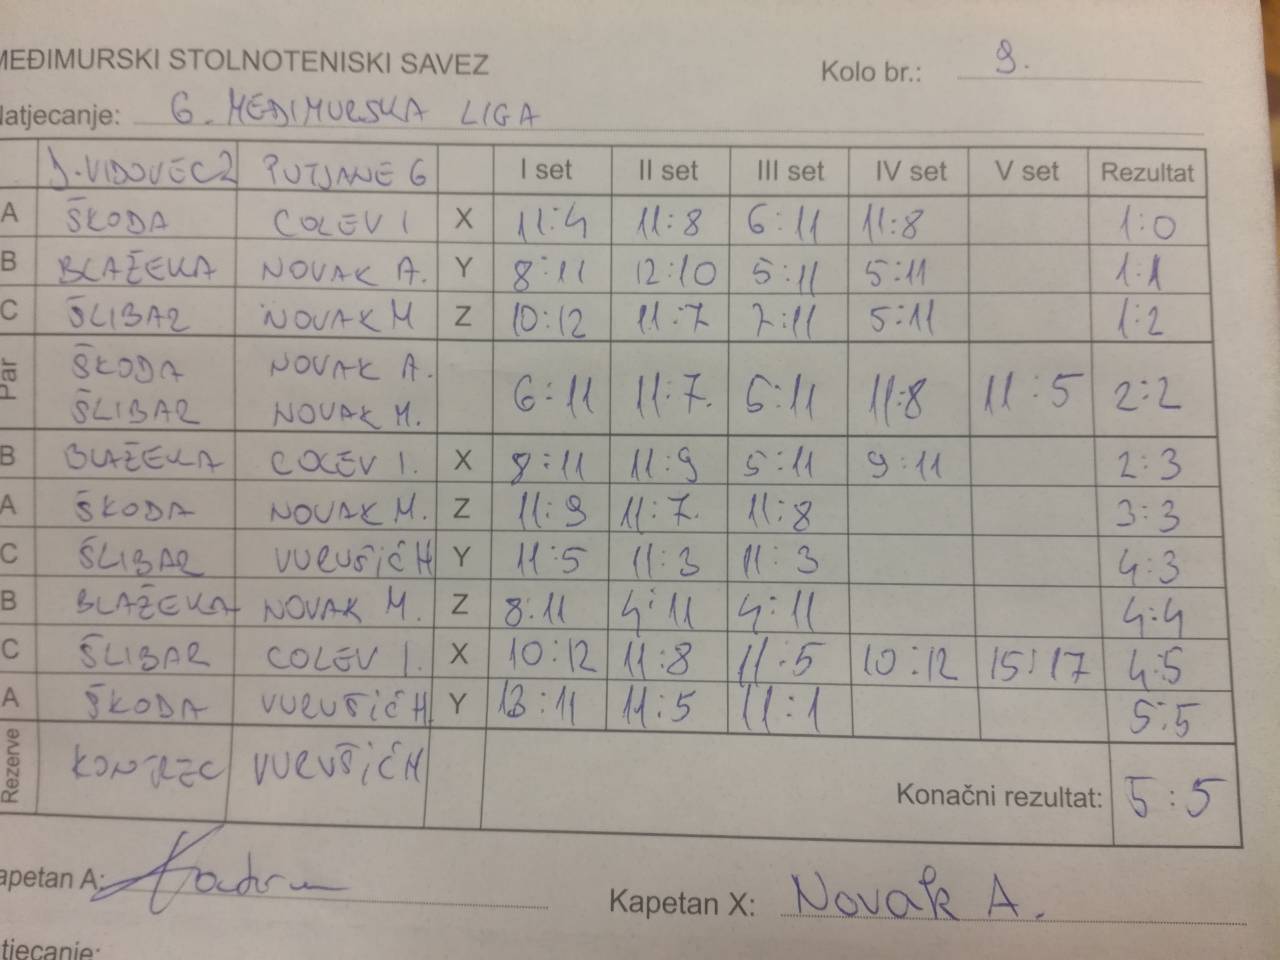 MEĐIMURSKI STOLNOTENISKI SAVEZ
Kolo br.: 9.
Natjecanje: 6. MEĐIMURSKA LIGA
D.VIDOVEC2 PUTJANE 6 I set II set III set IV set V set Rezultat
A ŠKODA COLEV I X 11:4 11:8 6:11 11:8 1:0
B BLAŽEKA NOVAK A. Y 8:11 12:10 5:11 5:11 1:1
C ŠLIBAR NOVAK M Z 10:12 11:7 7:11 5:11 1:2
Par ŠKODA NOVAK A.
ŠLIBAR NOVAK M. 6:11 11:7. 5:11 11:8 11:5 2:2
B BLAŽEKA COLEV I. X 8:11 11:9 5:11 9:11 2:3
A ŠKODA NOVAK M. Z 11:9 11:7. 11:8 3:3
C ŠLIBAR VURUŠIĆ H Y 11:5 11:3 11:3 4:3
B BLAŽEKA NOVAK M. Z 8:11 4:11 4:11 4:4
C ŠLIBAR COLEV I. X 10:12 11:8 11:5 10:12 15:17 4:5
A ŠKODA VURUŠIĆ H Y 13:11 11:5 11:1 5:5
Rezerve VURUŠIĆ H Konačni rezultat: 5:5
Kapetan A:
Kapetan X: Novak A.
Natjecanje: